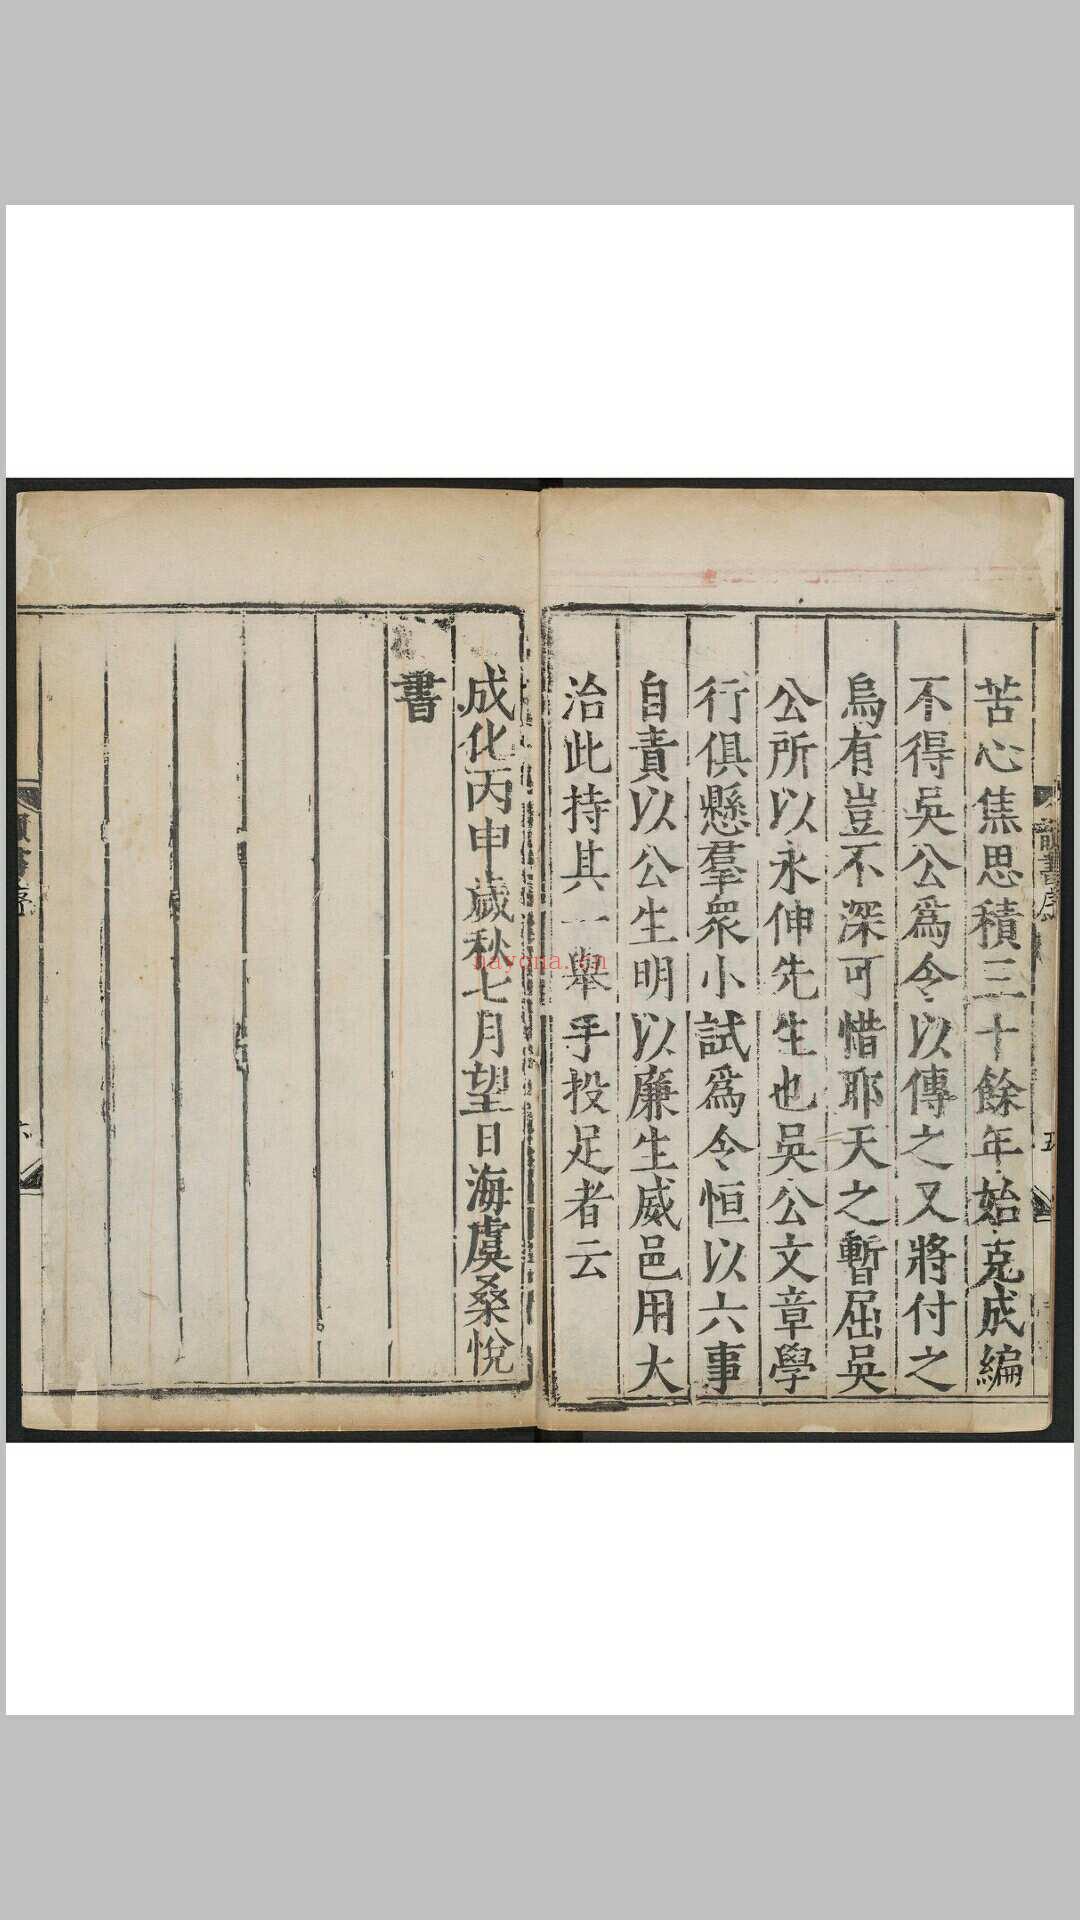 苦心焦思積三十餘年始克成編
不得吳公爲令以傳之又將付之
烏有豈不深可惜耶天之暫屈吳
公所以永伸先生也吳公文章學
行俱懸羣衆小試爲令恒以六事
自責以公生明以廉生威邑用大
治此持其一舉手投足者云
成化丙申歲秋七月望日海虞桑悅
書
nayona.cn